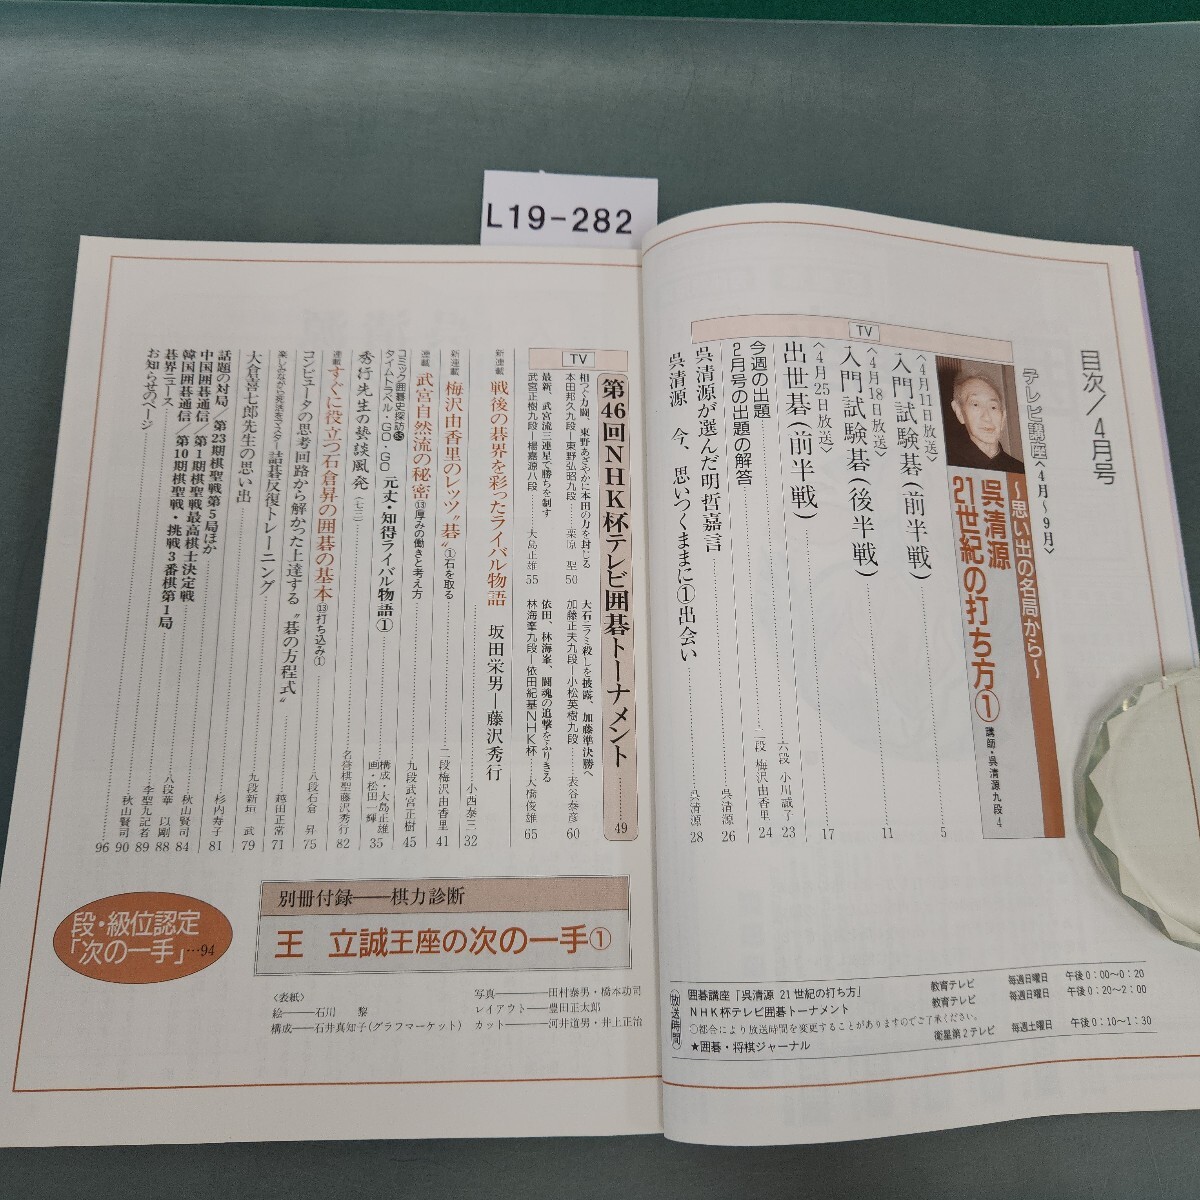 L19-282
目次/4月号
テレビ講座〈4月〜9月〉
〜思い出の名局から〜
呉清源
21世紀の打ち方①
講師・呉清源九段 4
TV
〈4月11日放送〉
入門試験碁(前半戦) 5
〈4月18日放送〉
入門試験碁(後半戦) 11
〈4月25日放送〉
出世碁(前半戦) 17
今週の出題 六段 小川誠子 23
2月号の出題の解答 二段 梅沢由香里 24
呉清源が選んだ明哲嘉言 呉清源 26
呉清源 今、思いつくままに①出会い 呉清源 28
囲碁講座「呉清源 21世紀の打ち方」 教育テレビ 毎週日曜日 午後0:00〜0:20
NHK杯テレビ囲碁トーナメント 教育テレビ 毎週日曜日 午後0:20〜2:00
○都合により放送時間を変更することがありますのでご了承ください。
★囲碁・将棋ジャーナル 衛星第2テレビ 毎週土曜日 午後0:10〜1:30
〈放送時間〉
TV
第46回NHK杯テレビ囲碁トーナメント 49
相つぐ力闘、東野あざやかに本田の力を封じる
本田邦久九段―東野弘昭九段 栗原 聖 50
大石ニラミ殺しを披露、加藤準決勝へ
加藤正夫九段―小松英樹九段 表谷泰彦 60
最新、武宮流三連星で勝ちを制す
武宮正樹九段―楊嘉源八段 大島正雄 55
依田、林海峯、闘魂の追撃をふりきる
林海峯九段―依田紀基NHK杯 大橋俊雄 65
新連載 戦後の碁界を彩ったライバル物語 坂田栄男―藤沢秀行 小西泰三 32
新連載 梅沢由香里のレッツ〝碁〟①石を取る 二段梅沢由香里 41
連載 武宮自然流の秘密⑬厚みの働きと考え方 九段武宮正樹 45
コミック囲碁史探訪
タイムトラベル・GO・GO 元丈・知得ライバル物語① 構成・大島正雄 画・松田一輝 35
秀行先生の藝談風発(七三) 名誉棋聖藤沢秀行 82
連載 すぐに役立つ石倉昇の囲碁の基本⑬打ち込み① 八段石倉 昇 75
コンピュータの思考回路から解かった上達する〝碁の方程式〟 越田正常 71
楽しみながら死活をマスター 詰碁反復トレーニング 九段新垣 武 79
大倉喜七郎先生の思い出 杉内寿子 81
話題の対局/第23期棋聖戦第5局ほか 秋山賢司 84
中国囲碁通信/第1期棋聖戦最高棋士決定戦 八段華 以剛 88
韓国囲碁通信/第10期棋聖戦・挑戦3番棋第1局 李聖九記者 89
碁界ニュース 秋山賢司 90
お知らせのページ 96
段・級位認定
「次の一手」…94
別冊付録――棋力診断
王 立誠王座の次の一手①
〈表紙〉
絵――石川 黎
構成――石井真知子(グラフマーケット)
写真――田村泰男・橋本功司
レイアウト――豊田正太郎
カット――河井道男・井上正治